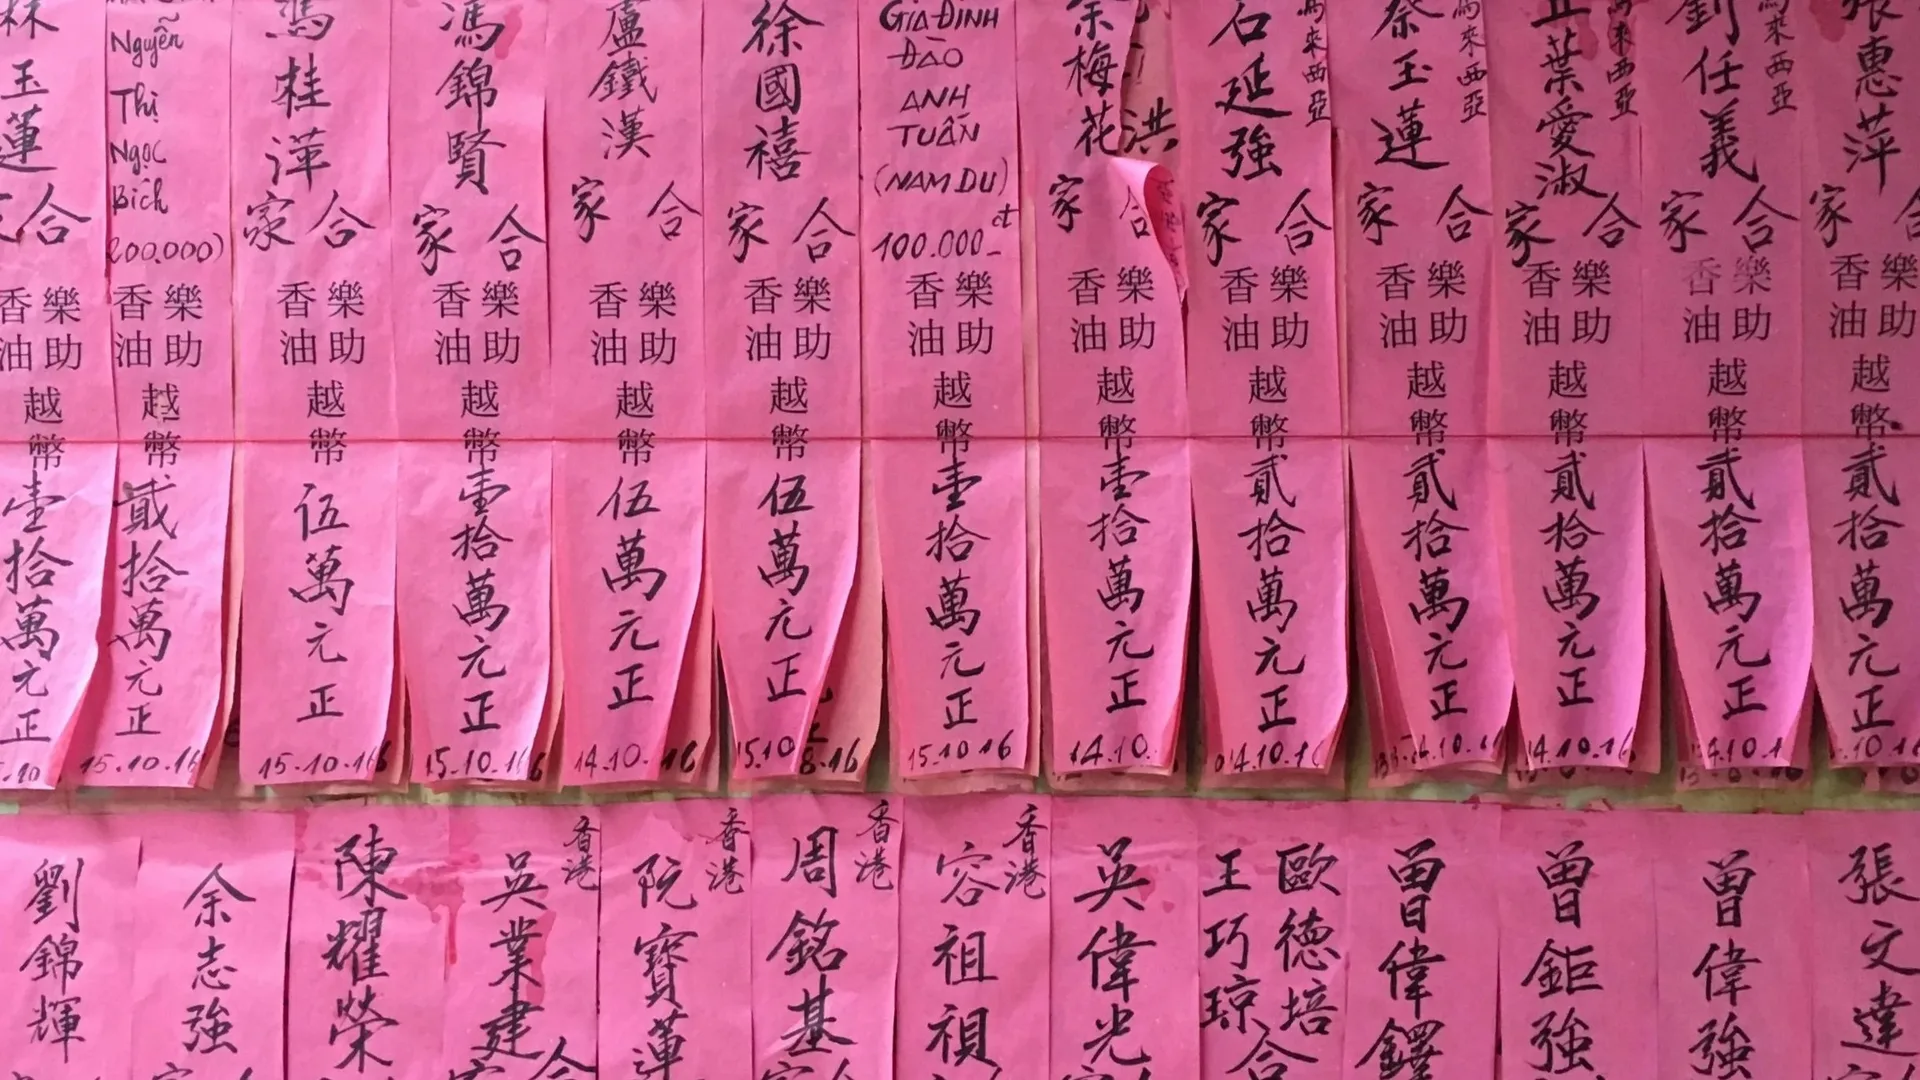 林玉蓮
合家
樂助
香油
越幣
壹拾萬元正
Nguyễn
Thị
Ngọc
Bích
200.000)
樂助
香油
越幣
貳拾萬元正
15.10.16
馮桂萍
合家
樂助
香油
越幣
伍萬元正
15.10.16
馮錦賢
合家
樂助
香油
越幣
壹拾萬元正
15.10.16
盧鐵漢
合家
樂助
香油
越幣
伍萬元正
14.10.16
徐國禧
合家
樂助
香油
越幣
伍萬元正
15.10
8.16
GIA ĐÌNH
ĐÀO
ANH
TUẤN
(NAM DU)
100.000
樂助
香油
越幣
壹拾萬元正
15.10.16
余梅花
洪
合家
樂助
香油
越幣
壹拾萬元正
14.10.
馬來西亞
石延強
合家
樂助
香油
越幣
貳拾萬元正
14.10.16
馬來西亞
蔡玉蓮
合家
樂助
香油
越幣
貳拾萬元正
馬來西亞
葉愛淑
合家
樂助
香油
越幣
貳拾萬元正
14.10.16
馬來西亞
劉任義
合家
樂助
香油
越幣
貳拾萬元正
14.10.1
張惠萍
合家
樂助
香油
越幣
貳拾萬元正
劉錦輝
余志強
陳耀榮
香港
吳業建
合
香港
阮寶蓮
香港
周銘基
香港
容祖
吳偉光
歐德培
王巧琼
合
曾偉鐸
曾鉅強
曾偉強
張文達